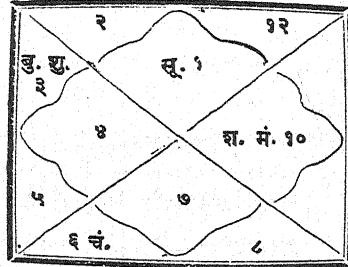 २ १२
बु. शु. सू. १
३
४ श. मं. १०
५ ७
६ चं. ८